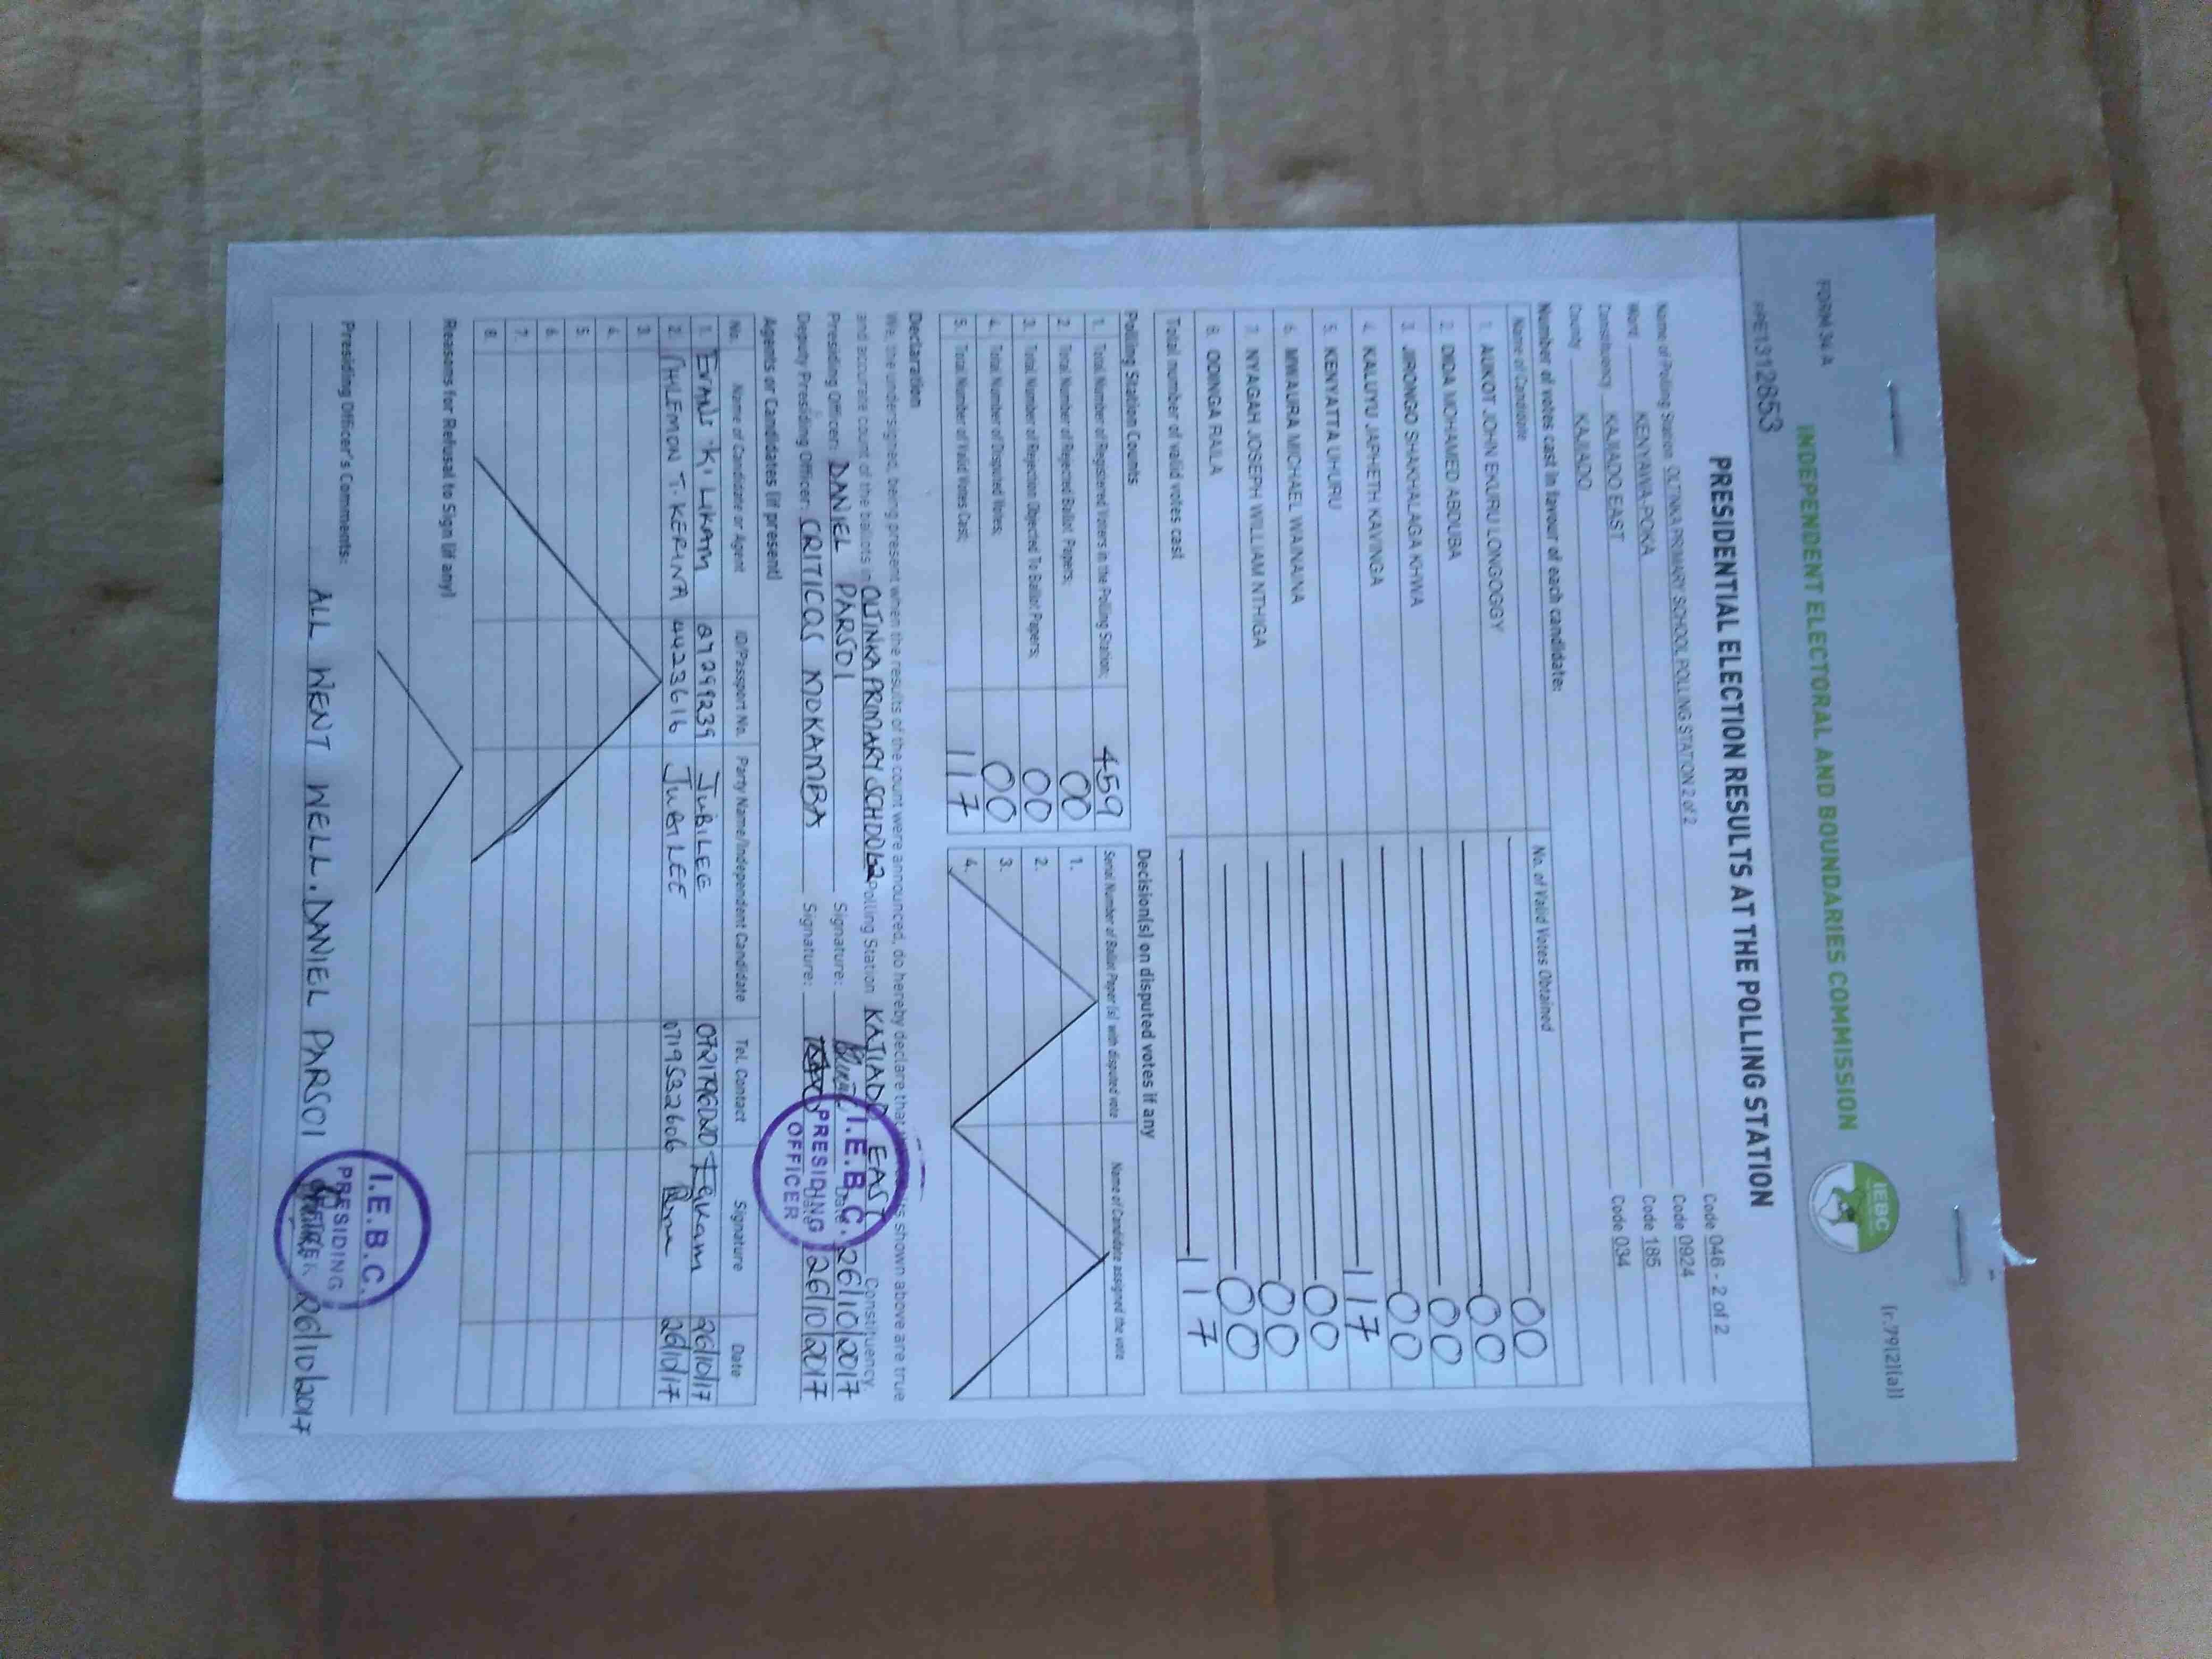 FORM 34 A
(r.79(2)(a))
INDEPENDENT ELECTORAL AND BOUNDARIES COMMISSION
IEBC
PRE1312853
PRESIDENTIAL ELECTION RESULTS AT THE POLLING STATION
Name of Polling Station OLTINKA PRIMARY SCHOOL POLLING STATION 2 of 2 Code 046 - 2 of 2
Ward KENYAWA-POKA Code 0924
Constituency KAJIADO EAST Code 185
County KAJIADO Code 034
Number of votes cast in favour of each candidate:
Name of Candidate No. of Valid Votes Obtained
1. AUKOT JOHN EKURU LONGOGGY 00
2. DIDA MOHAMED ABDUBA 00
3. JIRONGO SHAKHALAGA KHWA 00
4. KALUYU JAPHETH KAVINGA 00
5. KENYATTA UHURU 117
6. MWAURA MICHAEL WAINAINA 00
7. NYAGAH JOSEPH WILLIAM NTHIGA 00
8. ODINGA RAILA 00
Total number of valid votes cast 117
Polling Station Counts
1. Total Number of Registered Voters in the Polling Station; 459
2. Total Number of Rejected Ballot Papers; 00
3. Total Number of Rejection Objected To Ballot Papers; 00
4. Total Number of Disputed Votes; 00
5. Total Number of Valid Votes Cast; 117
Decision(s) on disputed votes if any
Serial Number of Ballot Paper (s) with disputed vote Name of Candidate assigned the vote
1.
2.
3.
4.
Declaration
We, the undersigned, being present when the results of the count were announced, do hereby declare that shown above are true
and accurate count of the ballots in OLTINKA PRIMARY SCHOOL 2 Polling Station KAJIADO EAST Constituency
Presiding Officer: DANIEL PARSOI Signature: Date: 26/10/2017
Deputy Presiding Officer: CRITICOS MOKAMBA Signature: 26/10/2017
I.E.B.C.
PRESIDING
OFFICER
Agents or Candidates (if present)
No. Name of Candidate or Agent ID/Passport No. Party Name/Independent Candidate Tel. Contact Signature Date
1. EVANS K. LIKAM 27299239 JUBILEE 0721796020 26/10/17
2. PHILEMON T. KERINA 4423616 JUBILEE 0719532606 26/10/17
3.
4.
5.
6.
7.
8.
Reasons for Refusal to Sign (if any)
Presiding Officer's Comments:
ALL WENT WELL. DANIEL PARSOI 26/10/2017
I.E.B.C.
PRESIDING
OFFICER